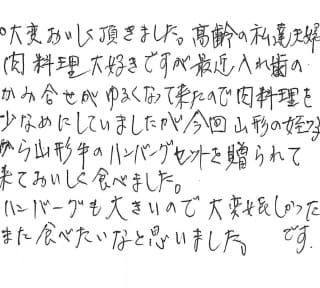 ○大変おいしく頂きました。高齢の私達夫婦
肉料理大好きですが最近入れ歯の
かみ合せがゆるくなって来たので肉料理を
少なめにしていましたが今回山形の姪
から山形牛のハンバーグセットを贈られて
来ておいしく食べました。
ハンバーグも大きいので大変嬉しかった
また食べたいなと思いました。 です.